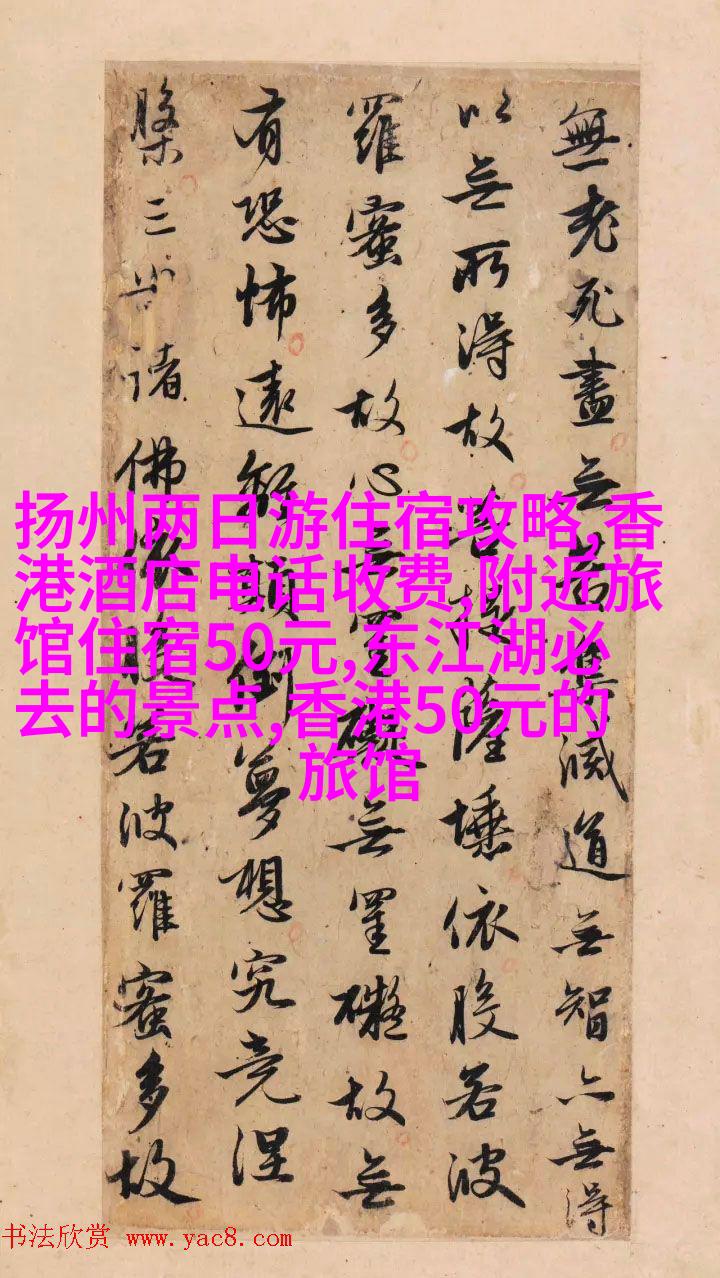 無老死盡無苦集滅道無智亦無得
以無所得故菩提薩埵依般若波
羅蜜多故心無罣礙無罣礙故無
有恐怖遠離顛倒夢想究竟涅
槃三世諸佛依般若波羅蜜多故
扬州两日游住宿攻略,香
港酒店电话收费,附近旅
馆住宿50元,东江湖必
去的景点,香港50元的
旅馆
书法欣赏 www.yac8.com